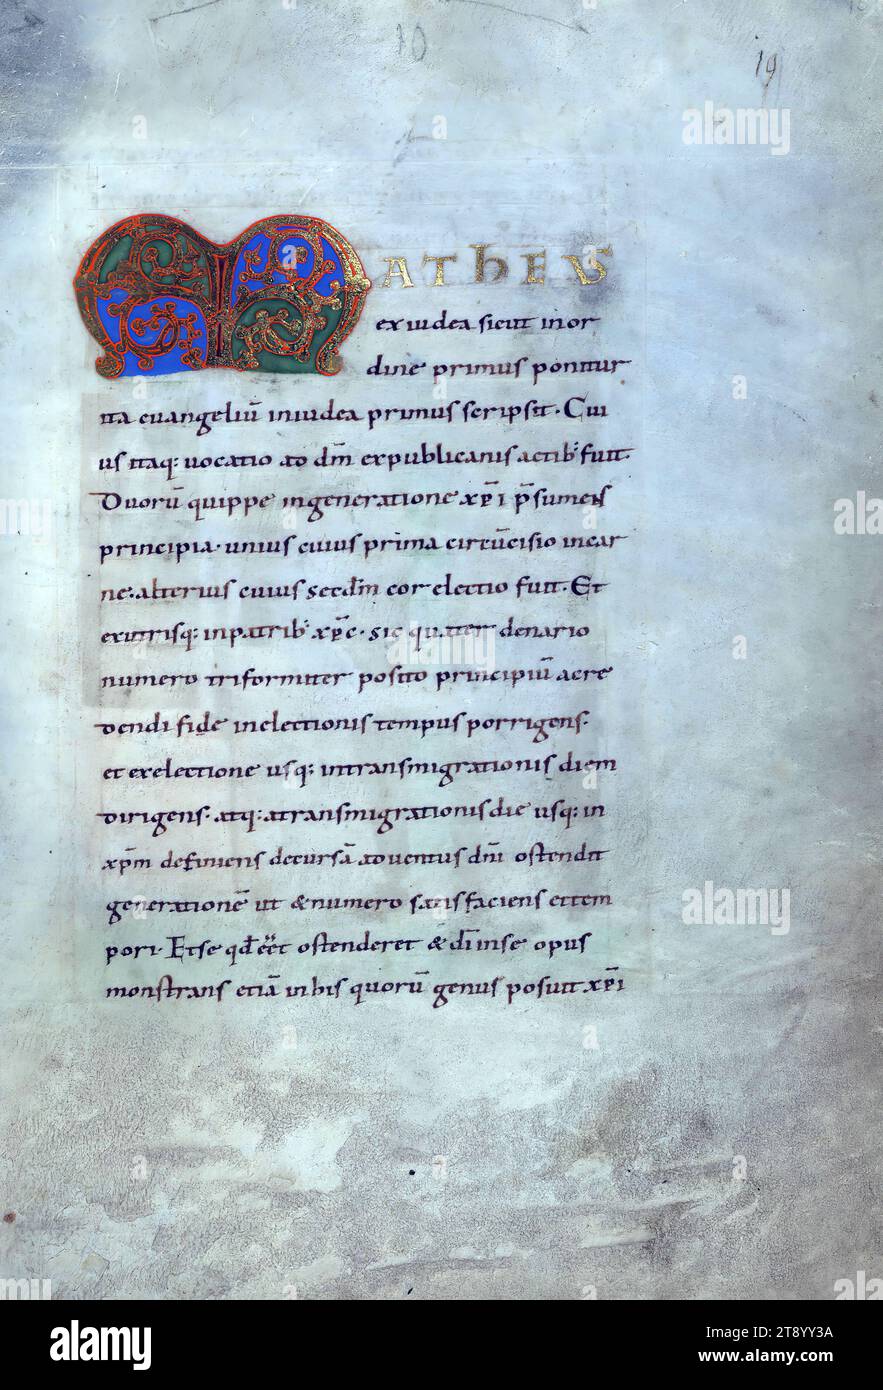 10
19
MATHEUS
exiudea sicut inor
dine primus ponitur
ita euangeliū iniudea primus scripsit· Cui
us itaq; uocatio ad dm̄ expublicanis actib; fuit·
Duorū quippe ingeneratione xp̄i p̄sumens
principia· unius cuius prima circūcisio incar
ne· alterius cuius secdm̄ cor electio fuit· Et
exutrisq; inpatrib; xp̄c· sic quater denario
numero triformiter posito principiū acre
dendi fide inelectionis tempus porrigens·
et exelectione usq; intransmigrationis diem
dirigens· atq; atransmigrationis die usq; in
xp̄m definiens decursā aduentus dn̄i ostendit
generationē ut &numero satisfaciens ettem
pori· Etse qd̄ eēt ostenderet & dī inse opus
monstrans etiā inhis quorū genus posuit xp̄i
alamy
alamy
alamy
alamy
alamy
Image ID: 2T8YY3A
www.alamy.com